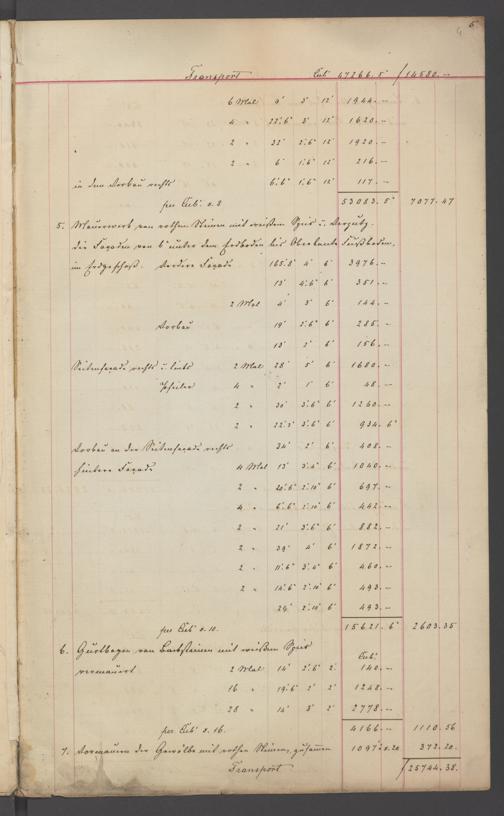 5
Transport Cub' 47266.5' /14580.--
6 Mal 9' 3' 12' 1944.--
4 " 22'.6" 12' 1620.--
2 " 32' 2'.6" 12' 1920.--
2 " 6' 1'.6" 12' 216.--
in dem Vorbau rechts 6'.6" 1'.6" 12' 117.--
per Cub' 53083.5" 7077.47
5. Mauerwerk von rothen Steinen mit weißem
der Façaden von 6" unter dem Erdboden bis Oberkante Fußboden,
im Erdgeschoß. Vordere Façade 4' 6' 3976.--
13' 4'.6" 6' 351.--
2 Mal 4' 3' 6' 144.--
Vorbau 19' 2'.6" 6' 285.--
13' 2' 6' 156.--
Seitenfaçade rechts u. links 2 Mal 28' 5' 6' 1680.--
Pfeiler 4 " 2' 1' 6' 48.--
2 " 30' 3'.6" 6' 1260.--
2 " 3'.6" 6' 934.6"
Vorbau an der Seitenfaçade rechts 34' 2' 6' 408.--
hintere Façade 4 Mal 13' 3'.4" 6' 1040.--
2 " 20'.6" 2'.10" 6' 697.--
4 " 6'.6" 2'.10" 6' 442.--
2 " 21' 3'.6" 6' 882.--
2 " 39' 4' 6' 1872.--
2 " 11'.6" 3'.4" 6' 460.--
2 " 14'.6" 2'.10" 6' 493.--
29' 2'.10" 6' 493.--
per Cub' 0.10. 15621.6" 2603.35
6. Gurtbogen von Backsteinen mit weißem Cub'
vermauert 2 Mal 14' 2'.6" 2' 140.--
16 " 19'.6" 2' 2' 1248.--
28 " 14' 2' 2778.--
per Cub' 0.16. 4166.-- 1110.56
7. Vormauern der Gewölbe mit rothen Steinen, zusammen 1097' 372.20.
Transport /25744.38.